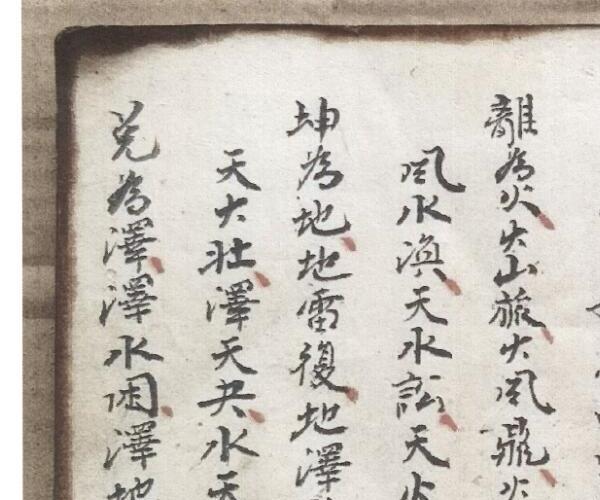 離為火火山旅火風鼎火
風水渙天水訟天火
坤為地地雷復地澤
天大壯澤天夬水天
兌為澤澤水困澤地